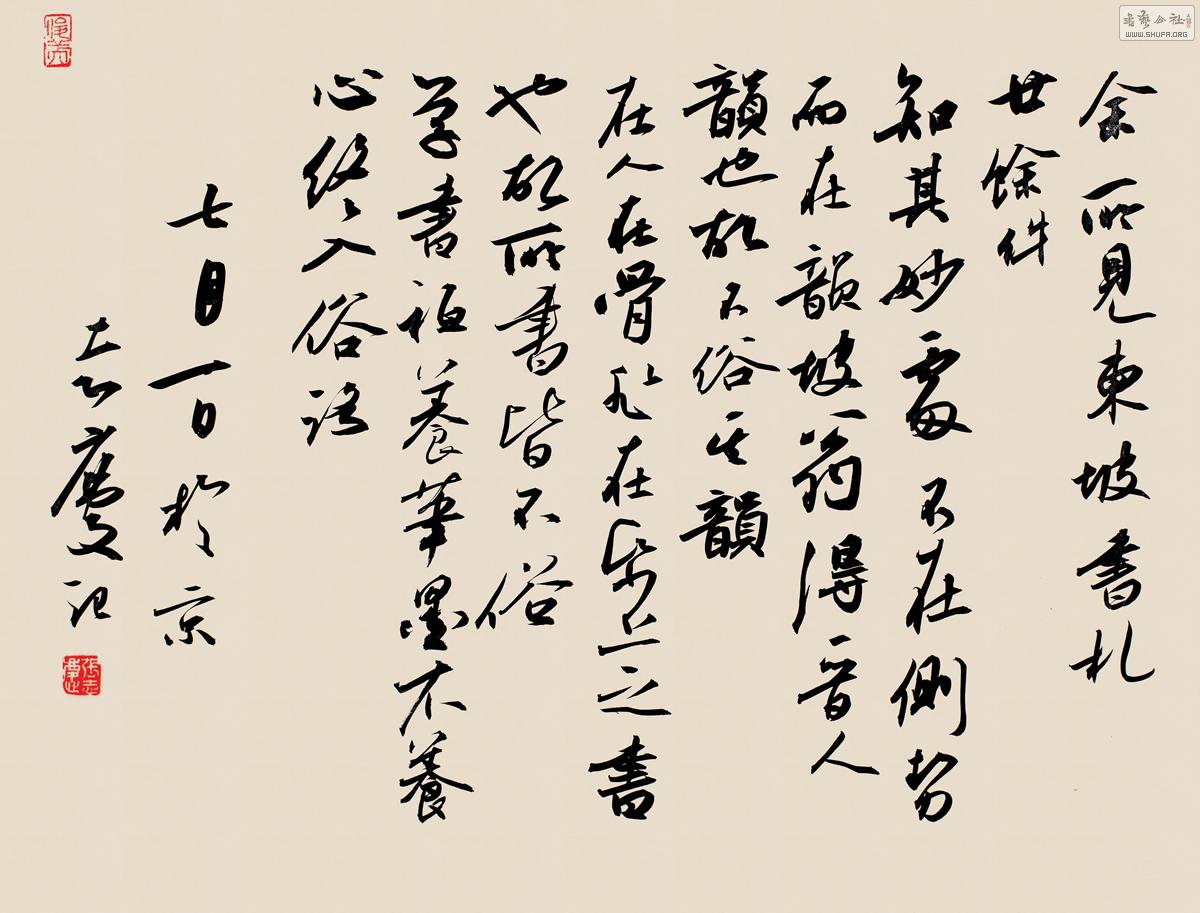 余所見東坡書札
廿餘件
知其妙處不在側勢
而在韻坡翁得晉人
韻也故不俗其韻
在人在骨非在紙上之書
也故所書皆不俗
學書祗養筆墨不養
心終入俗語
七月一日於京
志慶記
張志慶
書藝公社
WWW.SHUFA.ORG